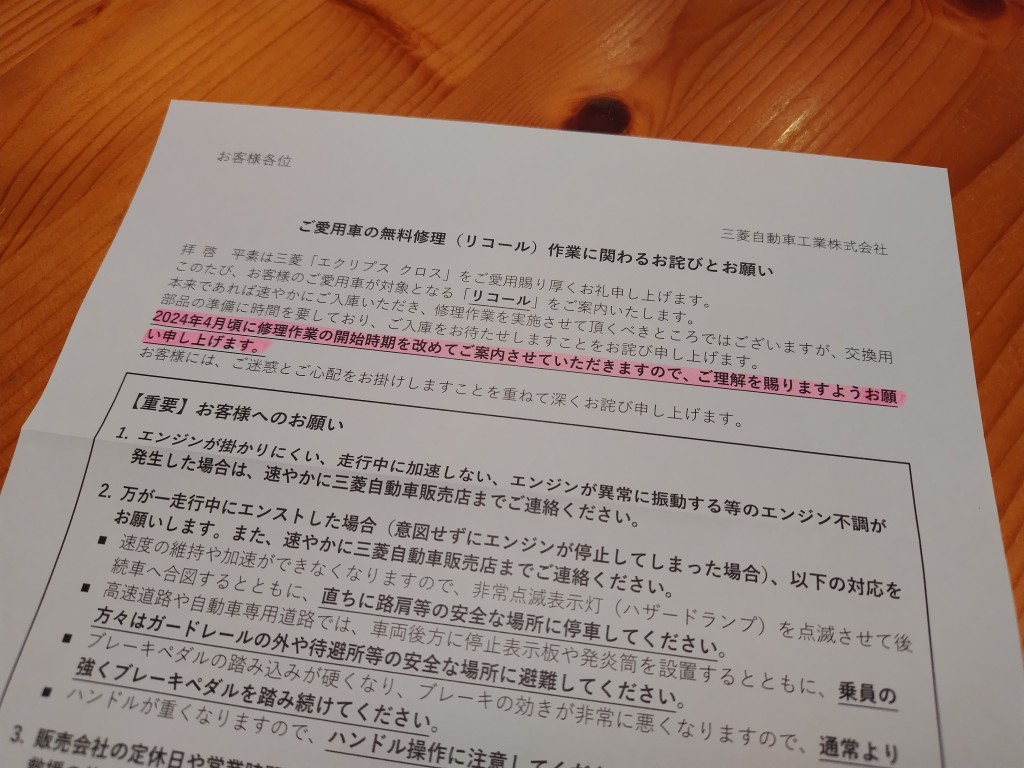 お客様各位
三菱自動車工業株式会社
ご愛用車の無料修理（リコール）作業に関わるお詫びとお願い
拝 啓　平素は三菱「エクリプス クロス」をご愛用賜り厚くお礼申し上げます。
このたび、お客様のご愛用車が対象となる「リコール」をご案内いたします。
本来であれば速やかにご入庫いただき、修理作業を実施させて頂くべきところではございますが、交換用
部品の準備に時間を要しており、ご入庫をお待たせしますことをお詫び申し上げます。
2024年4月頃に修理作業の開始時期を改めてご案内させていただきますので、ご理解を賜りますようお願
い申し上げます。
お客様には、ご迷惑とご心配をお掛けしますことを重ねて深くお詫び申し上げます。
【重要】お客様へのお願い
1. エンジンが掛かりにくい、走行中に加速しない、エンジンが異常に振動する等のエンジン不調が
発生した場合は、速やかに三菱自動車販売店までご連絡ください。
2. 万が一走行中にエンストした場合（意図せずにエンジンが停止してしまった場合）、以下の対応を
お願いします。また、速やかに三菱自動車販売店までご連絡ください。
■ 速度の維持や加速ができなくなりますので、非常点滅表示灯（ハザードランプ）を点滅させて後
続車へ合図するとともに、直ちに路肩等の安全な場所に停車してください。
■ 高速道路や自動車専用道路では、車両後方に停止表示板や発炎筒を設置するとともに、乗員の
方々はガードレールの外や待避所等の安全な場所に避難してください。
■ ブレーキペダルの踏み込みが硬くなり、ブレーキの効きが非常に悪くなりますので、通常より
強くブレーキペダルを踏み続けてください。
■ ハンドルが重くなりますので、ハンドル操作に注意してくだ
3. 販売会社の定休日や営業時間